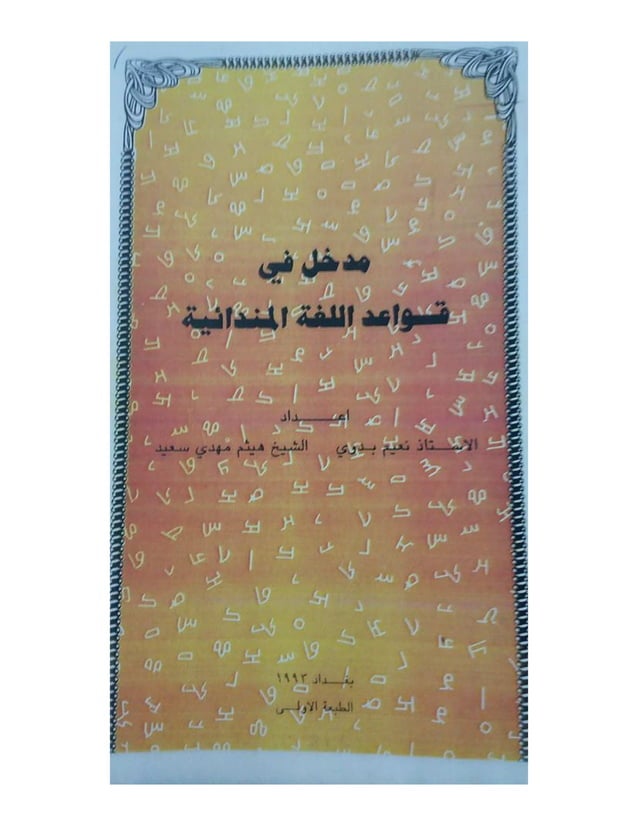 مدخل في
قـــواعد اللغة المندائية
اعـــــداد
الاســـتاذ نعيم بـــدوي الشيخ هيثم مهدي سعيد
بغـــداد ١٩٩٣
الطبعة الاولـــى